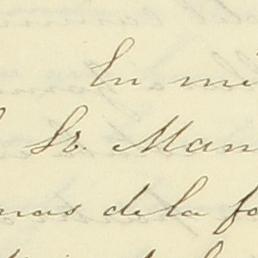 En mi
Sr. Man
mas de la fo